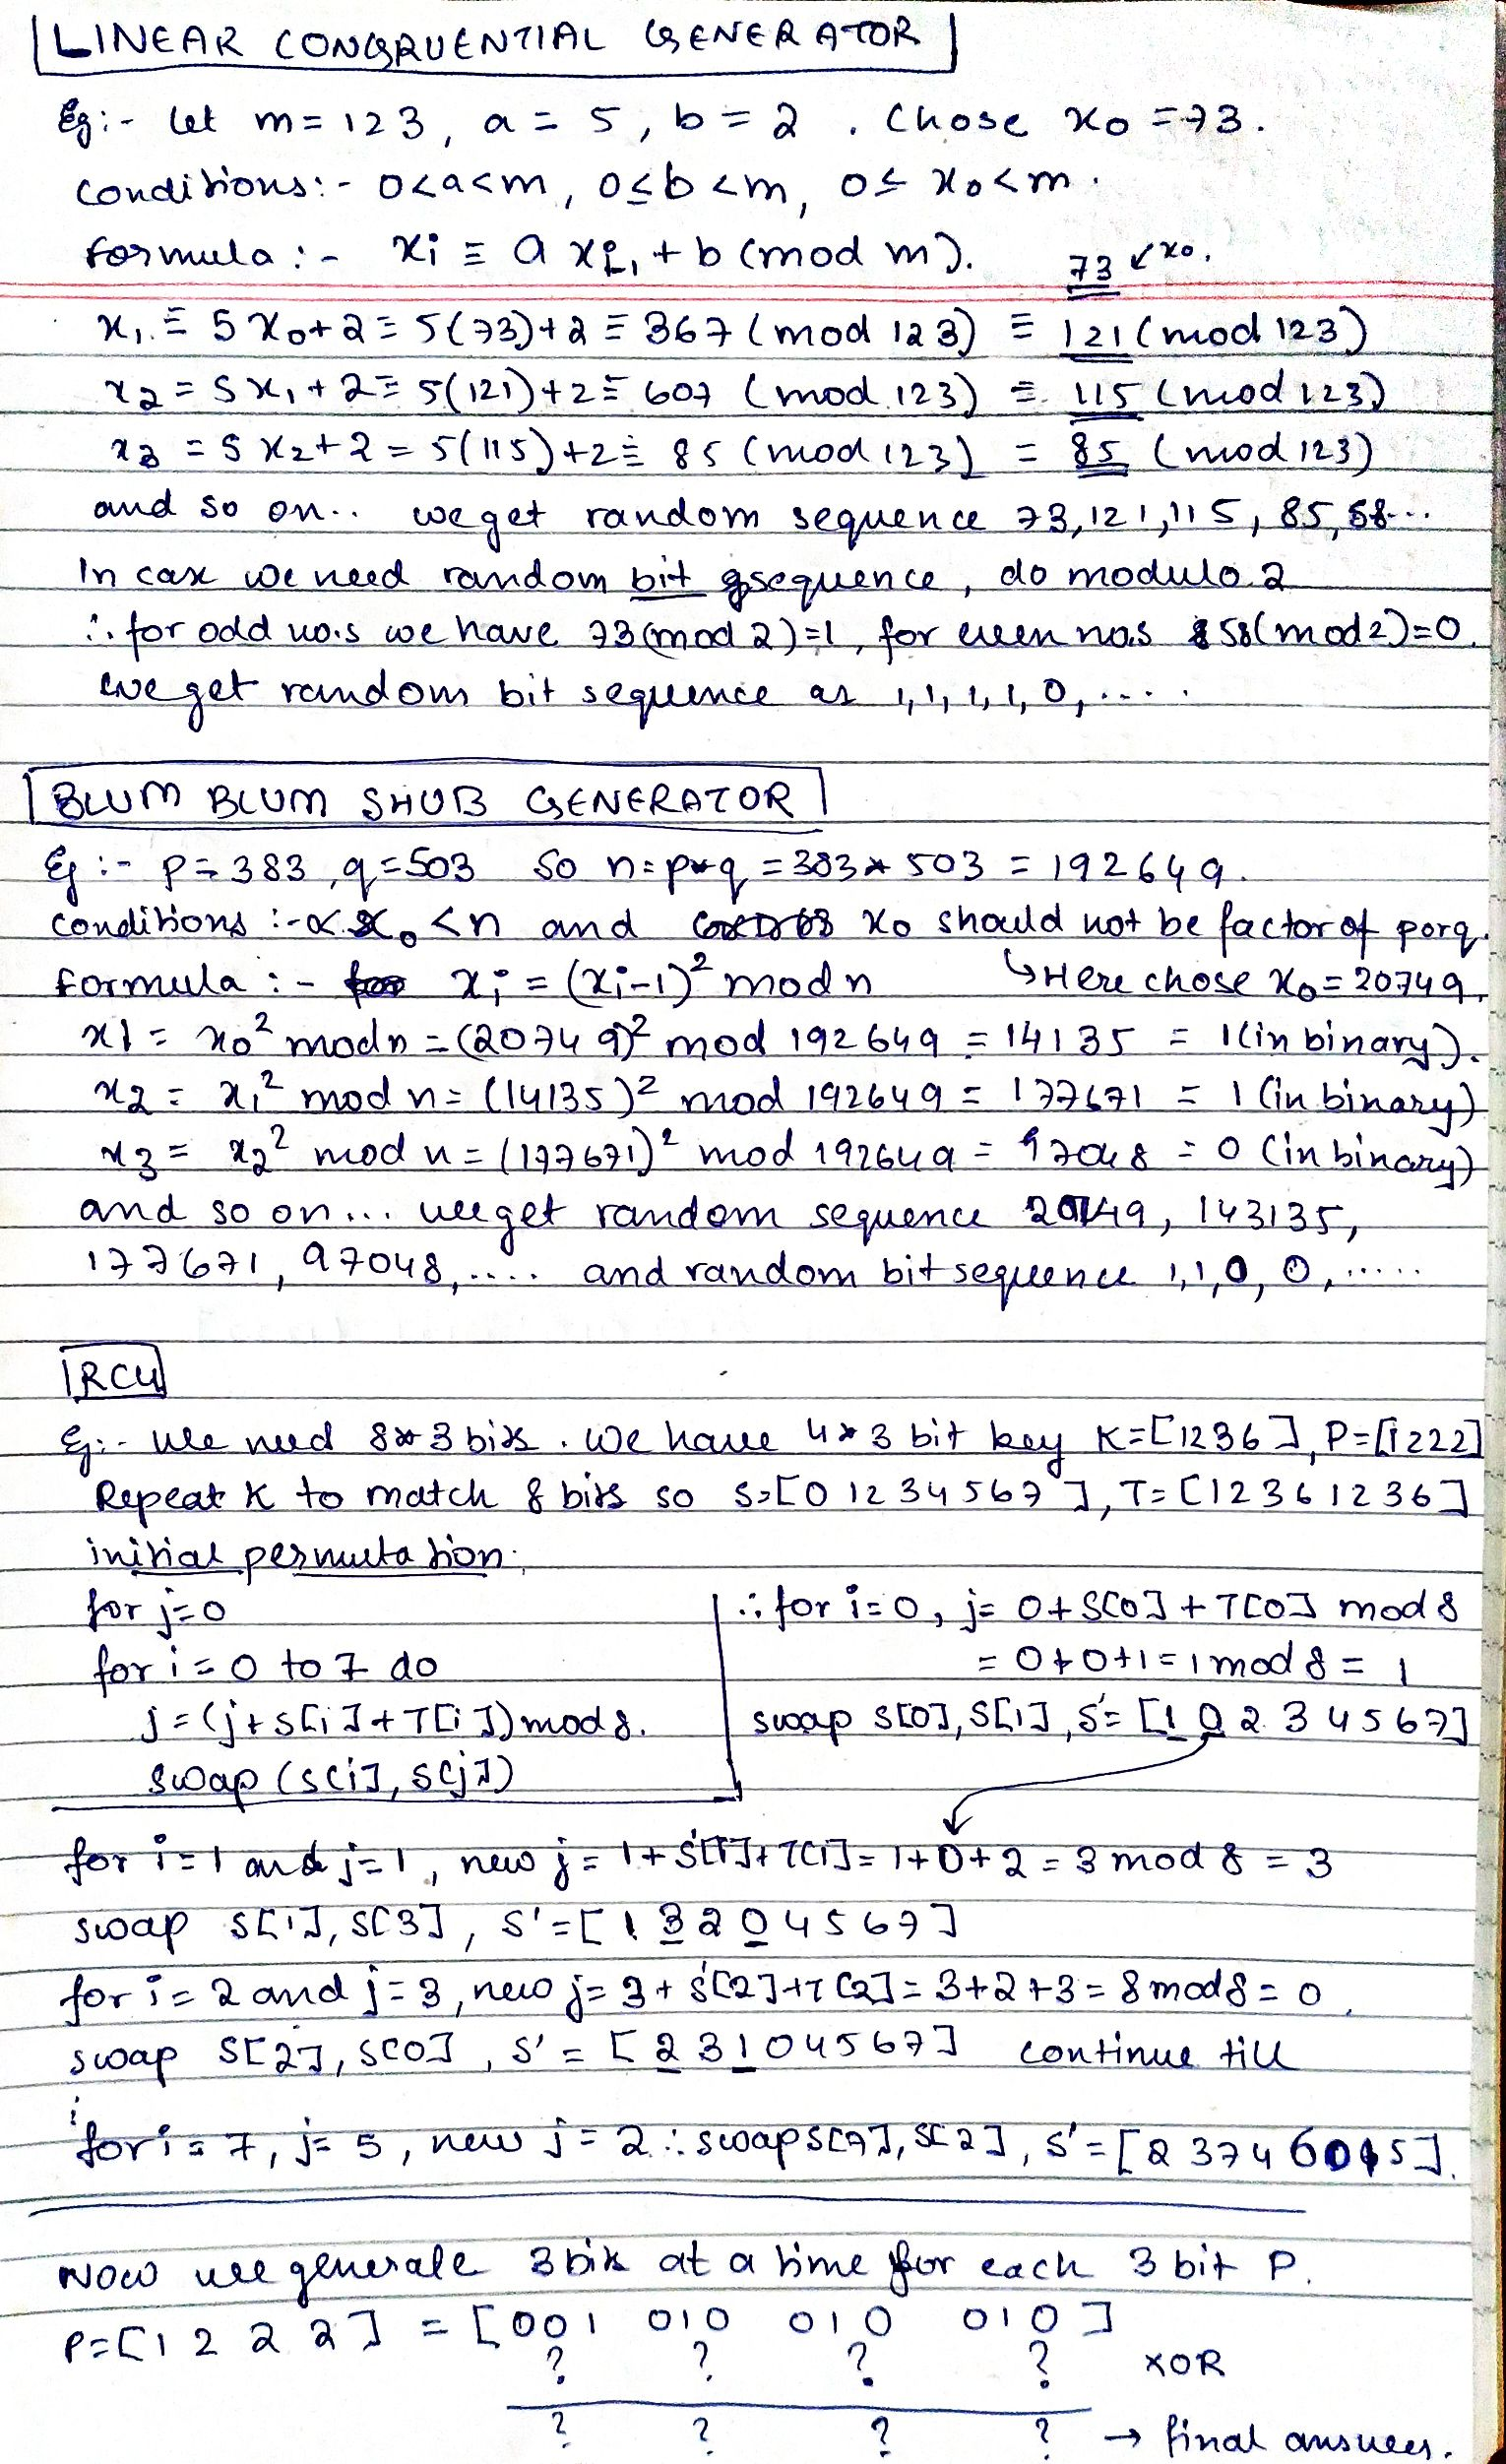 LINEAR CONGRUENTIAL GENERATOR
Eg:- let m=123, a=5, b=2. Chose x0=73.
Conditions:- 0<a<m, 0≤b<m, 0≤x0<m.
formula:- xi ≡ a xi-1 + b (mod m). 73 ↙x0.
x1 ≡ 5x0+2 ≡ 5(73)+2 ≡ 367 (mod 123) ≡ 121 (mod 123)
x2 = 5x1+2 ≡ 5(121)+2 ≡ 607 (mod 123) ≡ 115 (mod 123)
x3 = 5x2+2 = 5(115)+2 ≡ 85 (mod 123) = 85 (mod 123)
and so on.. we get random sequence 73,121,115,85,58...
In case we need random bit sequence, do modulo 2
∴ for odd no.s we have 73(mod 2)=1, for even nos 58(mod2)=0.
we get random bit sequence as 1,1,1,1,0,....
BLUM BLUM SHUB GENERATOR
Eg:- p=383, q=503 so n=p*q=383*503=192649.
conditions:- x0<n and x0 should not be factor of p or q.
formula:- xi=(xi-1)² mod n ↳Here chose x0=20749.
x1 = x0² mod n = (20749)² mod 192649 = 14135 = 1(in binary).
x2 = x1² mod n = (14135)² mod 192649 = 177671 = 1 (in binary)
x3 = x2² mod n = (177671)² mod 192649 = 97048 = 0 (in binary)
and so on... we get random sequence 20749, 143135,
177671, 97048,.... and random bit sequence 1,1,0,0,.....
RC4
Eg:- We need 8*3 bits. We have 4*3 bit key K=[1236], P=[1222]
Repeat K to match 8 bits so S=[01234567], T=[12361236]
initial permutation:
for j=0
for i=0 to 7 do
j=(j+S[i]+T[i])mod 8.
swap(S[i], S[j])
∴ for i=0, j= 0+S[0]+T[0] mod 8
= 0+0+1=1 mod 8 = 1
swap S[0], S[1], S'=[1 0 2 3 4 5 6 7]
for i=1 and j=1, new j= 1+S'[1]+T[1]=1+0+2=3 mod 8=3
swap S[1], S[3], S'=[1 3 2 0 4 5 6 7]
for i=2 and j=3, new j= 3+S'[2]+T[2]=3+2+3=8 mod 8=0.
swap S[2], S[0], S'=[2 3 1 0 4 5 6 7] continue till
for i=7, j=5, new j=2 ∴ swap S[7], S[2], S'=[2 3 7 4 6 0 1 5].
Now we generate 3 bits at a time for each 3 bit P.
P=[1 2 2 2] = [001 010 010 010]
? ? ? ? XOR
? ? ? ? → final answer.